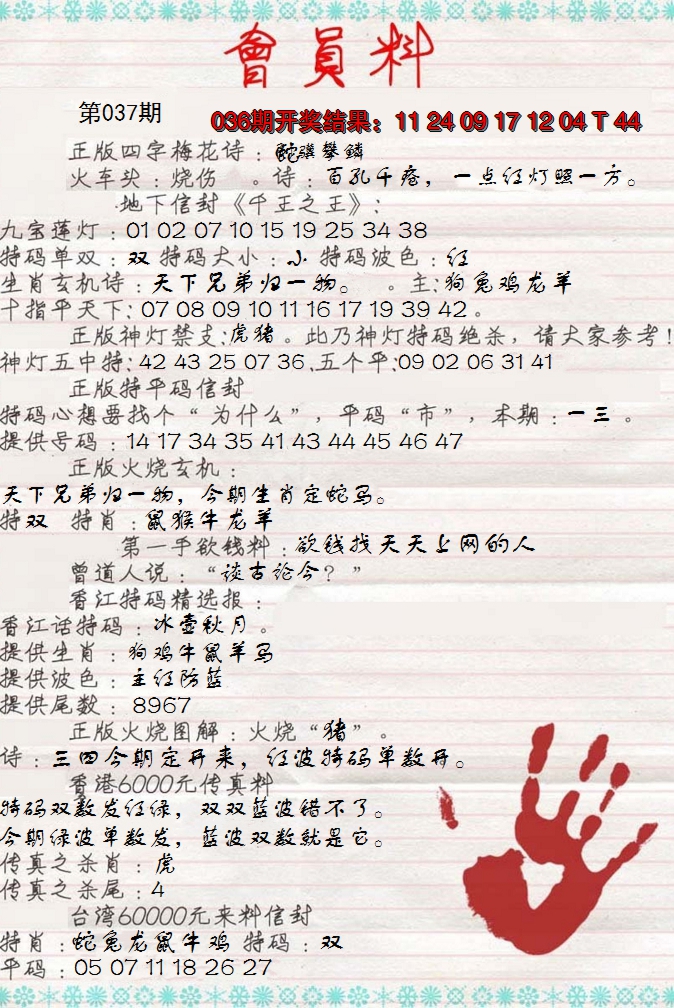 會員料
第037期
036期开奖结果：11 24 09 17 12 04 T 44
正版四字梅花诗：蛇骥攀鳞
火车头：烧伤 。诗：百孔千疮，一点红灯照一方。
地下信封《千王之王》：
九宝莲灯：01 02 07 10 15 19 25 34 38
特码单双：双 特码大小：小 特码波色：红
生肖玄机诗：天下兄弟归一物。 。主:狗兔鸡龙羊
十指平天下: 07 08 09 10 11 16 17 19 39 42 。
正版神灯禁支:虎猪 。此乃神灯特码绝杀，请大家参考!
神灯五中特: 42 43 25 07 36 .五个平:09 02 06 31 41
正版特平码信封
特码心想要找个“ 为什么”，平码“市”，本期：一三 。
提供号码：14 17 34 35 41 43 44 45 46 47
正版火烧玄机：
天下兄弟归一物，今期生肖定蛇马。
特双 特肖：鼠猴牛龙羊
第一手欲钱料：欲钱找天天上网的人
曾道人说：“谈古论今？”
香江特码精选报：
香江话特码：冰壶秋月 。
提供生肖：狗鸡牛鼠羊马
提供波色：主红防蓝
提供尾数：8967
正版火烧图解：火烧“猪” 。
诗：三四今期定开来，红波特码单数开。
香港6000元传真料
特码双数发红绿，双双蓝波错不了。
今期绿波单数发，蓝波双数就是它。
传真之杀肖：虎
传真之杀尾：4
台湾60000元来料信封
特肖：蛇兔龙鼠牛鸡 特码：双
平码：05 07 11 18 26 27